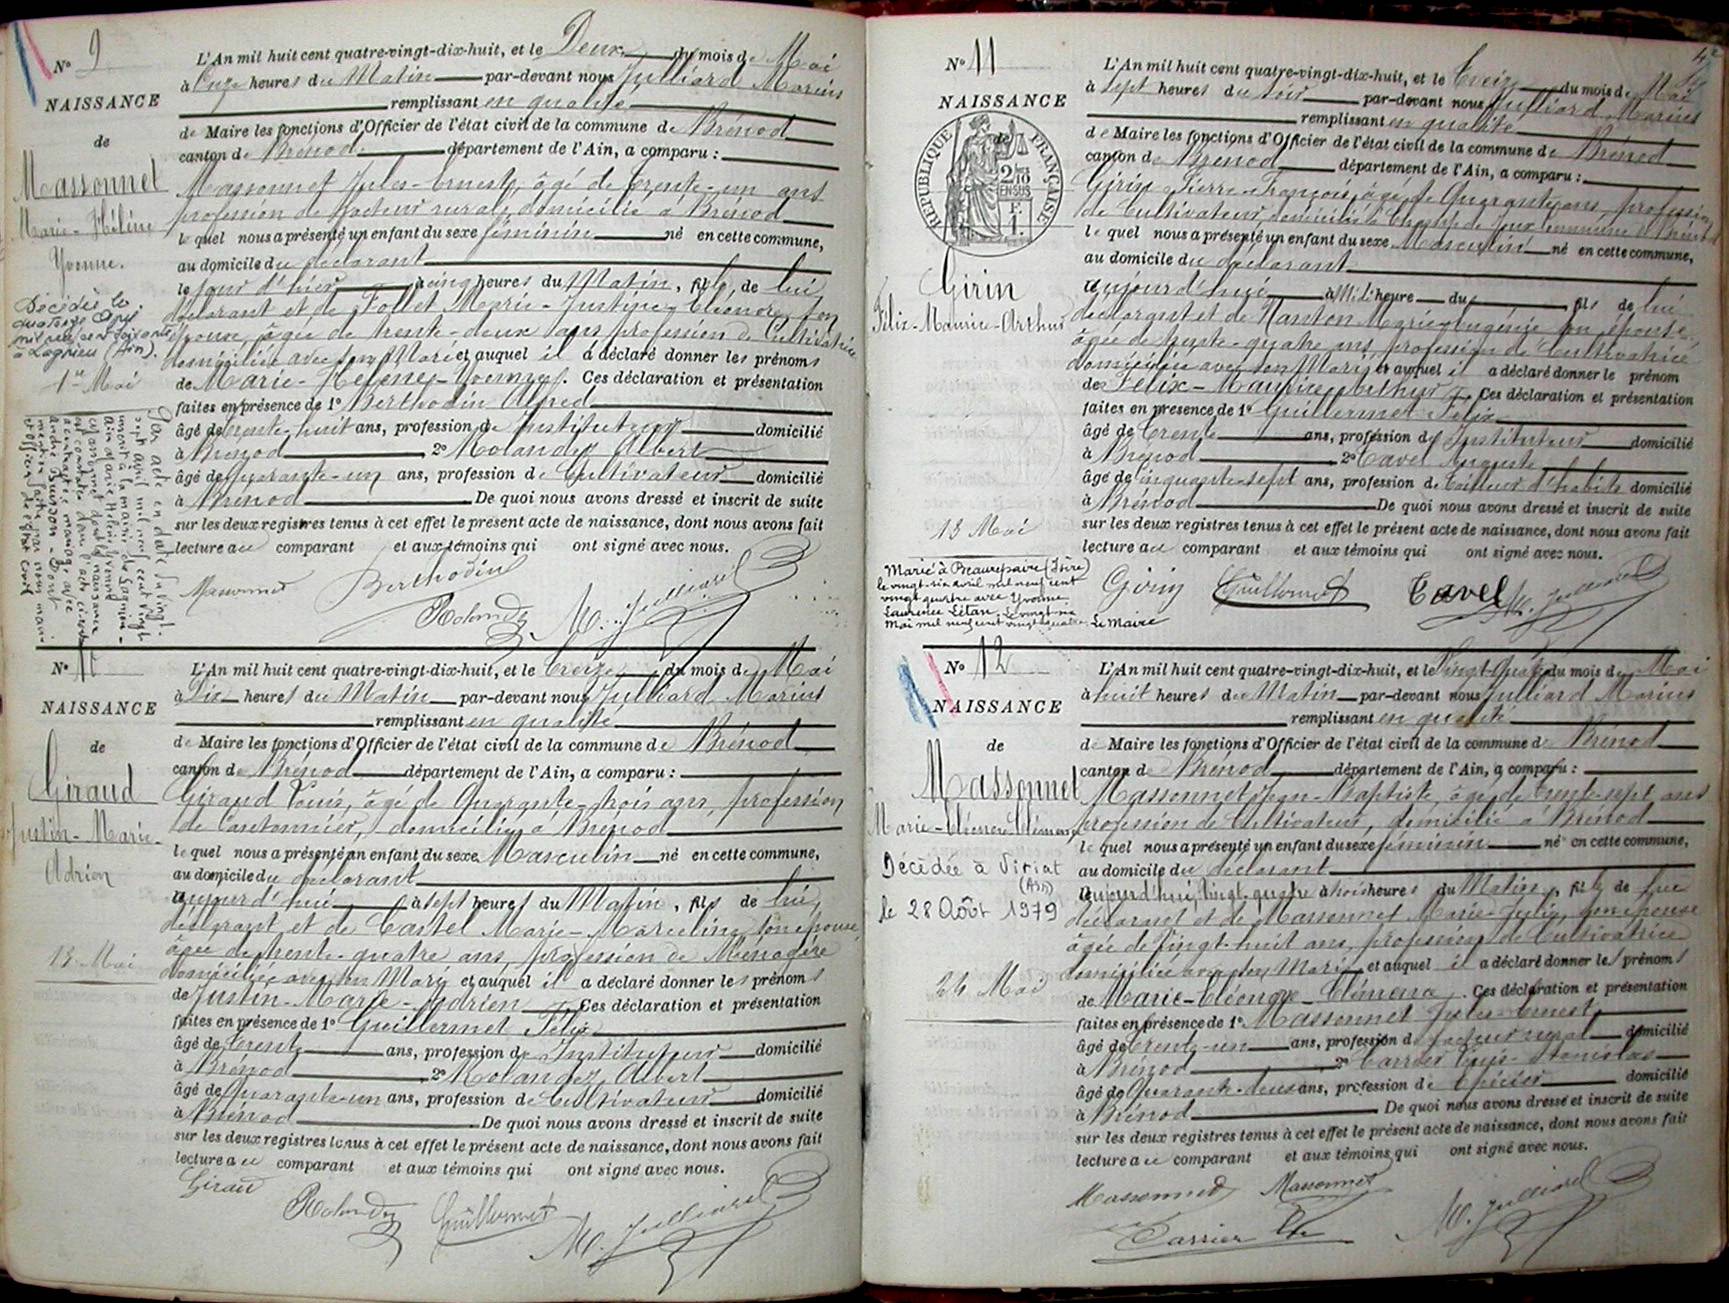 N° 9
NAISSANCE
de
Massonnet
Marie-Hélène
Yvonne.
Décédée le
quatorze
mil neuf cent soixante
à Lagnieu (Ain).
1er Mai
Par acte en date du vingt-
sept avril mil neuf cent vingt
à la mairie de Lagnieu -
Ain Marie Hélène Yvonne
Massonnet dont la naissance
est constatée dans l'acte ci-contre
a contracté mariage avec
André Buisson - Dont
mention faite par nous maire
et officier de l'état civil
L'An mil huit cent quatre-vingt-dix-huit, et le Deux du mois de Mai
à Onze heures du Matin par-devant nous Julliard Marius
remplissant en qualité
de Maire les fonctions d'Officier de l'état civil de la commune de Brénod
canton de Brénod département de l'Ain, a comparu :
Massonnet Jules-Ernest, âgé de trente-un ans
profession de Facteur rural domicilié à Brénod
lequel nous a présenté un enfant du sexe féminin né en cette commune,
au domicile du déclarant
le jour d'hier à cinq heures du Matin, fille de lui
déclarant et de Follet Marie-Justine-Eléonore son
épouse, âgée de trente-deux ans profession de Cultivatrice
domiciliée avec son Mari et auquel il a déclaré donner les prénoms
de Marie-Hélène-Yvonne. Ces déclaration et présentation
faites en présence de 1° Berthodin Alfred
âgé de trente-huit ans, profession de Instituteur domicilié
à Brénod 2° Molandez Albert
âgé de quarante-un ans, profession de Cultivateur domicilié
à Brénod De quoi nous avons dressé et inscrit de suite
sur les deux registres tenus à cet effet le présent acte de naissance, dont nous avons fait
lecture au comparant et aux témoins qui ont signé avec nous.
Massonnet Berthodin
Molandez M. Julliard
N° 10
NAISSANCE
de
Giraud
Justin-Marie-
Adrien
13 Mai
L'An mil huit cent quatre-vingt-dix-huit, et le treize du mois de Mai
à Dix heures du Matin par-devant nous Julliard Marius
remplissant en qualité
de Maire les fonctions d'Officier de l'état civil de la commune de Brénod
canton de Brénod département de l'Ain, a comparu :
Giraud Louis, âgé de Quarante-trois ans, profession
de Cantonnier, domicilié à Brénod
lequel nous a présenté un enfant du sexe Masculin né en cette commune,
au domicile du déclarant
aujourd'hui à sept heures du Matin, fils de lui,
déclarant et de Castel Marie-Marceline son épouse
âgée de trente-quatre ans, profession de Ménagère
domiciliée avec son Mari et auquel il a déclaré donner les prénoms
de Justin-Marie-Adrien. Ces déclaration et présentation
faites en présence de 1° Guillermet Félix
âgé de trente ans, profession de Instituteur domicilié
à Brénod 2° Molandez Albert
âgé de Quarante-un ans, profession de Cultivateur domicilié
à Brénod De quoi nous avons dressé et inscrit de suite
sur les deux registres tenus à cet effet le présent acte de naissance, dont nous avons fait
lecture au comparant et aux témoins qui ont signé avec nous.
Giraud
Molandez Guillermet M. Julliard
N° 11
NAISSANCE
de
RÉPUBLIQUE FRANÇAISE
2/10
EN SUS
F.
1.
Girin
Félix-Maurice-Arthur
13 Mai
Marié à Beaurepaire (Isère)
le vingt-six avril mil neuf cent
vingt quatre avec Yvonne
Laurence Létan. Le vingt six
Mai mil neuf cent vingt quatre. Le Maire
L'An mil huit cent quatre-vingt-dix-huit, et le treize du mois de Mai
à sept heures du soir par-devant nous Julliard Marius
remplissant en qualité
de Maire les fonctions d'Officier de l'état civil de la commune de Brénod
canton de Brénod département de l'Ain, a comparu :
Girin Pierre-François, âgé de Quarante ans, profession
de Cultivateur domicilié à commune de Brénod
lequel nous a présenté un enfant du sexe Masculin né en cette commune,
au domicile du déclarant
aujourd'hui à Midi heure du fils de lui
déclarant et de Nanton Marie-Eugénie son épouse
âgée de trente-quatre ans, profession de Cultivatrice
domiciliée avec son Mari et auquel il a déclaré donner le prénom
de Félix-Maurice-Arthur. Ces déclaration et présentation
faites en présence de 1° Guillermet Félix
âgé de trente ans, profession de Instituteur domicilié
à Brénod 2° Cavel Auguste
âgé de cinquante-sept ans, profession de tailleur d'habits domicilié
à Brénod De quoi nous avons dressé et inscrit de suite
sur les deux registres tenus à cet effet le présent acte de naissance, dont nous avons fait
lecture au comparant et aux témoins qui ont signé avec nous.
Girin Guillermet Cavel M. Julliard
N° 12
NAISSANCE
de
Massonnet
Marie-Léonore Clémence
Décédée à Viriat
(Ain)
le 28 Août 1979
24 Mai
L'An mil huit cent quatre-vingt-dix-huit, et le Vingt-Quatre du mois de Mai
à huit heures du Matin par-devant nous Julliard Marius
remplissant en qualité
de Maire les fonctions d'Officier de l'état civil de la commune de Brénod
canton de Brénod département de l'Ain, a comparu :
Massonnet Jean-Baptiste, âgé de trente-sept ans
profession de Cultivateur, domicilié à Brénod
lequel nous a présenté un enfant du sexe féminin né en cette commune,
au domicile du déclarant
Aujourd'hui, vingt-quatre à trois heures du Matin, fille de lui
déclarant et de Massonnet Marie-Julie, son épouse
âgée de vingt-huit ans, profession de Cultivatrice
domiciliée avec son Mari et auquel il a déclaré donner les prénoms
de Marie-Léonore-Clémence. Ces déclaration et présentation
faites en présence de 1° Massonnet Jules-Ernest,
âgé de trente-un ans, profession de facteur rural domicilié
à Brénod 2° Carrier Stanislas
âgé de Quarante-deux ans, profession de Epicier domicilié
à Brénod De quoi nous avons dressé et inscrit de suite
sur les deux registres tenus à cet effet le présent acte de naissance, dont nous avons fait
lecture au comparant et aux témoins qui ont signé avec nous.
Massonnet Massonnet
Carrier M. Julliard